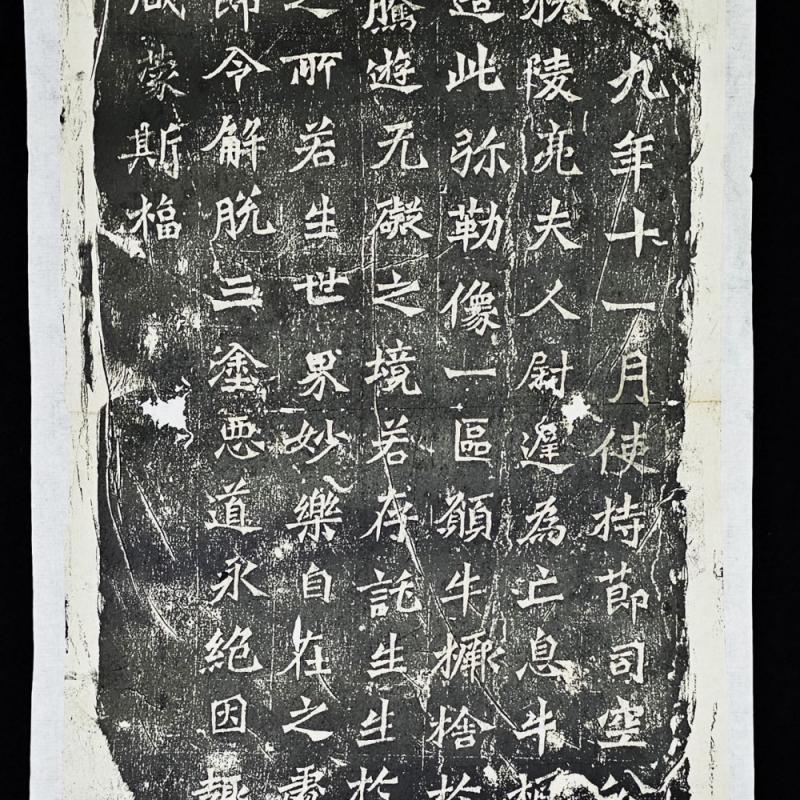 九年十一月使持節司空公
穆陵亮夫人尉遲為亡息牛橛
造此弥勒像一區願牛橛捨於
騰遊无礙之境若存託生生於
之所若生世界妙樂自在之處
即令解脱三塗惡道永絕因趣
咸蒙斯福